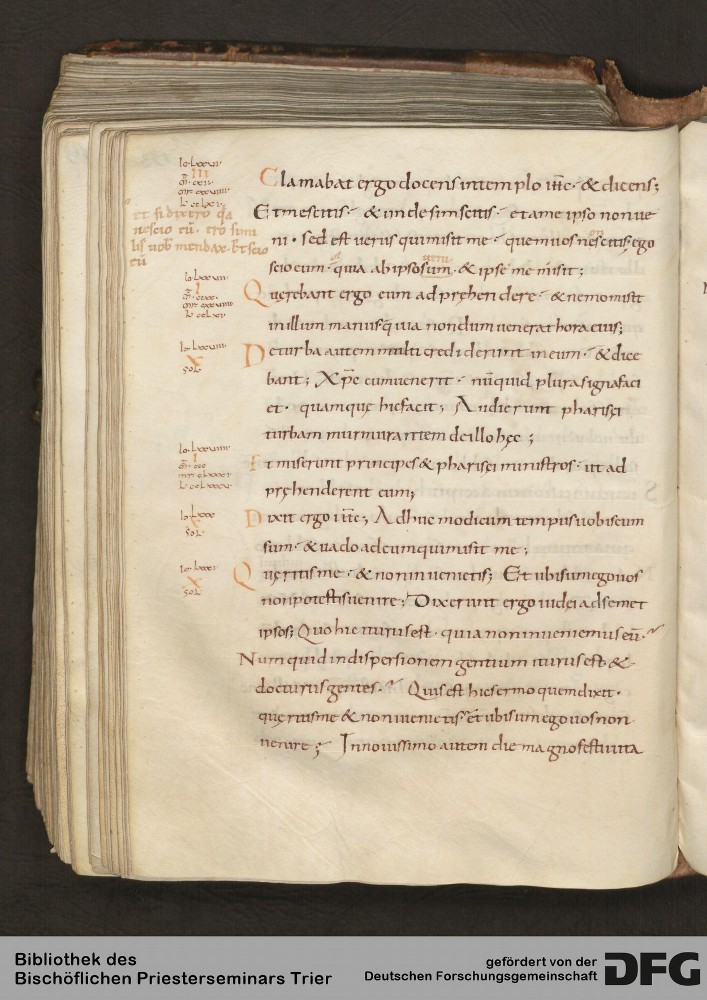 Clamabat ergo docens intemplo ihc · & dicens;
Et me scitis · & unde sim scitis · et a me ipso non ue
ni · sed est uerus qui misit me · quem uos nescitis; ego
scio eum · quia ab ipso sum · & ipse me misit;
et si dixero q̄a
nescio eū · ero simi
lis uob mendax · &t scio
eū
Querebant ergo eum ad prehendere · & nemo misit
in illum manus quia nondum uenerat hora eius;
De turba autem multi crediderunt in eum · & dice
bant; Xp̄c cum uenerit · nūquid plura signa faci
et · quam que hic facit; Audierunt pharisei
turbam murmurantem de illo hęc ;
Et miserunt principes & pharisei ministros · ut ad
prehenderent eum;
Dixit ergo ihc; Adhuc modicum tempus uobiscum
sum · & uado ad eum qui misit me;
Queritis me · & non inuenietis; Et ubi sum ego uos
non potestis uenire; Dixerunt ergo iudei ad semet
ipsos; Quo hic iturus est · quia non inueniemus eū ·
Num quid in dispersionem gentium iturus est · &
docturus gentes · Quis est hic sermo quem dixit ·
queritis me & non inuenietis · et ubi sum ego uos non
uenire; In nouissimo autem die magno festiuita
Bibliothek des
Bischöflichen Priesterseminars Trier
gefördert von der
Deutschen Forschungsgemeinschaft
DFG